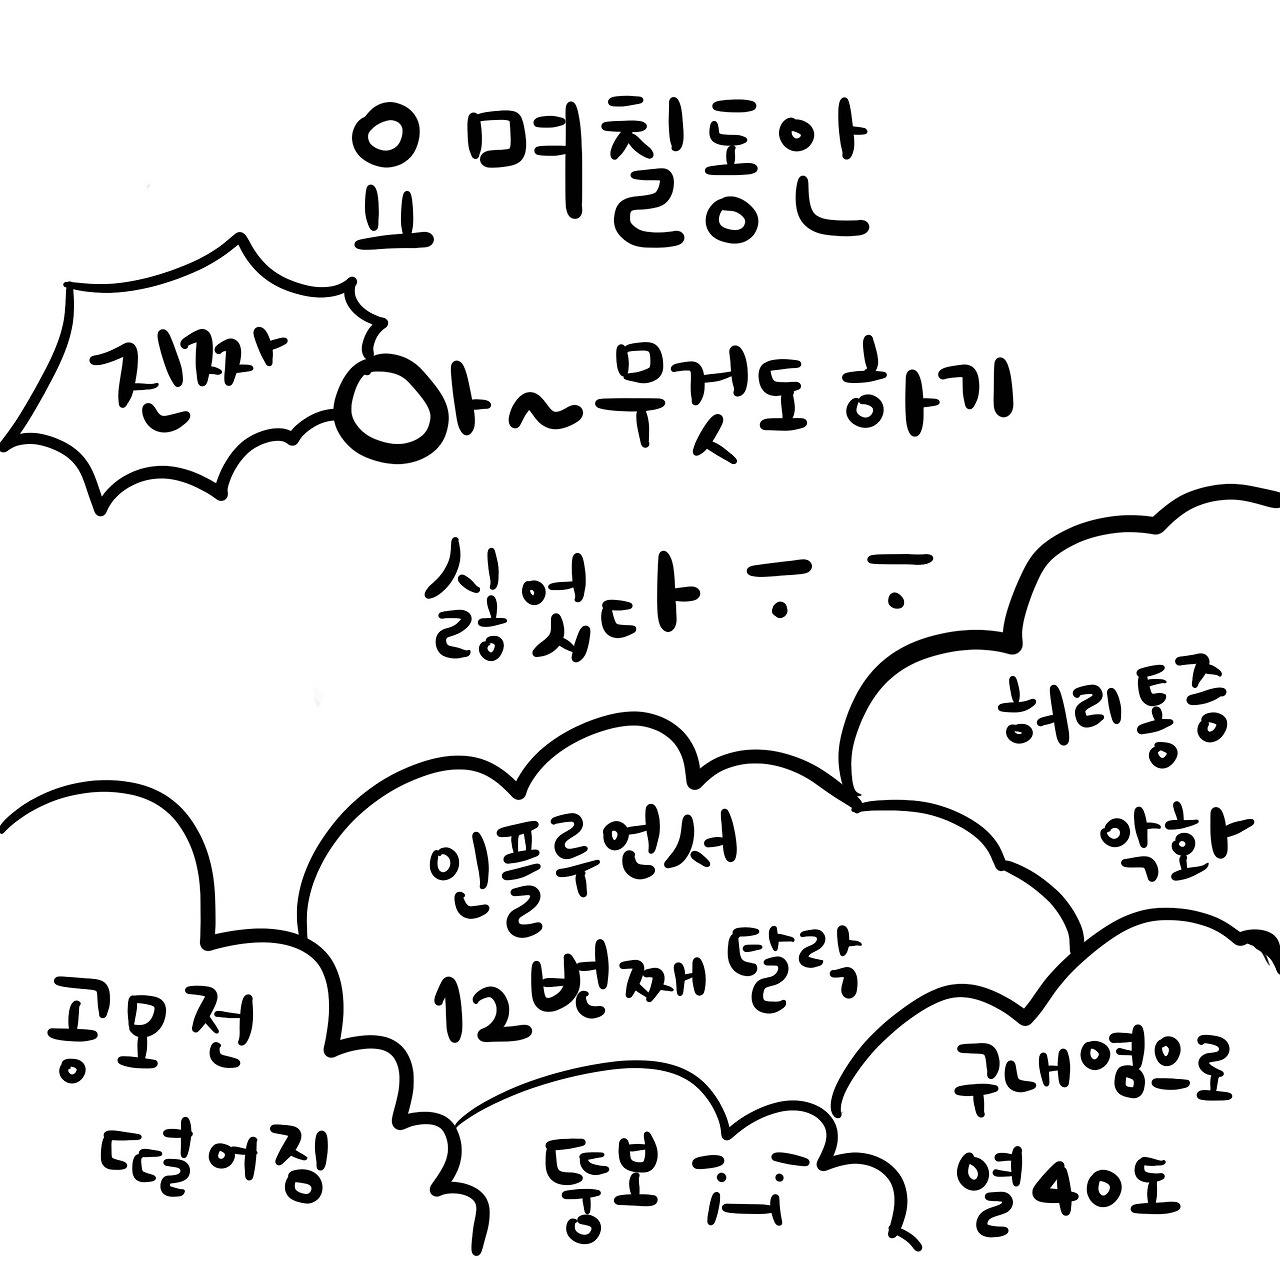 요 며칠동안
진짜
아~무것도 하기
싫었다
허리통증
악화
인플루언서
12번째 탈락
공모전
떨어짐
뚱보
구내염으로
열40도